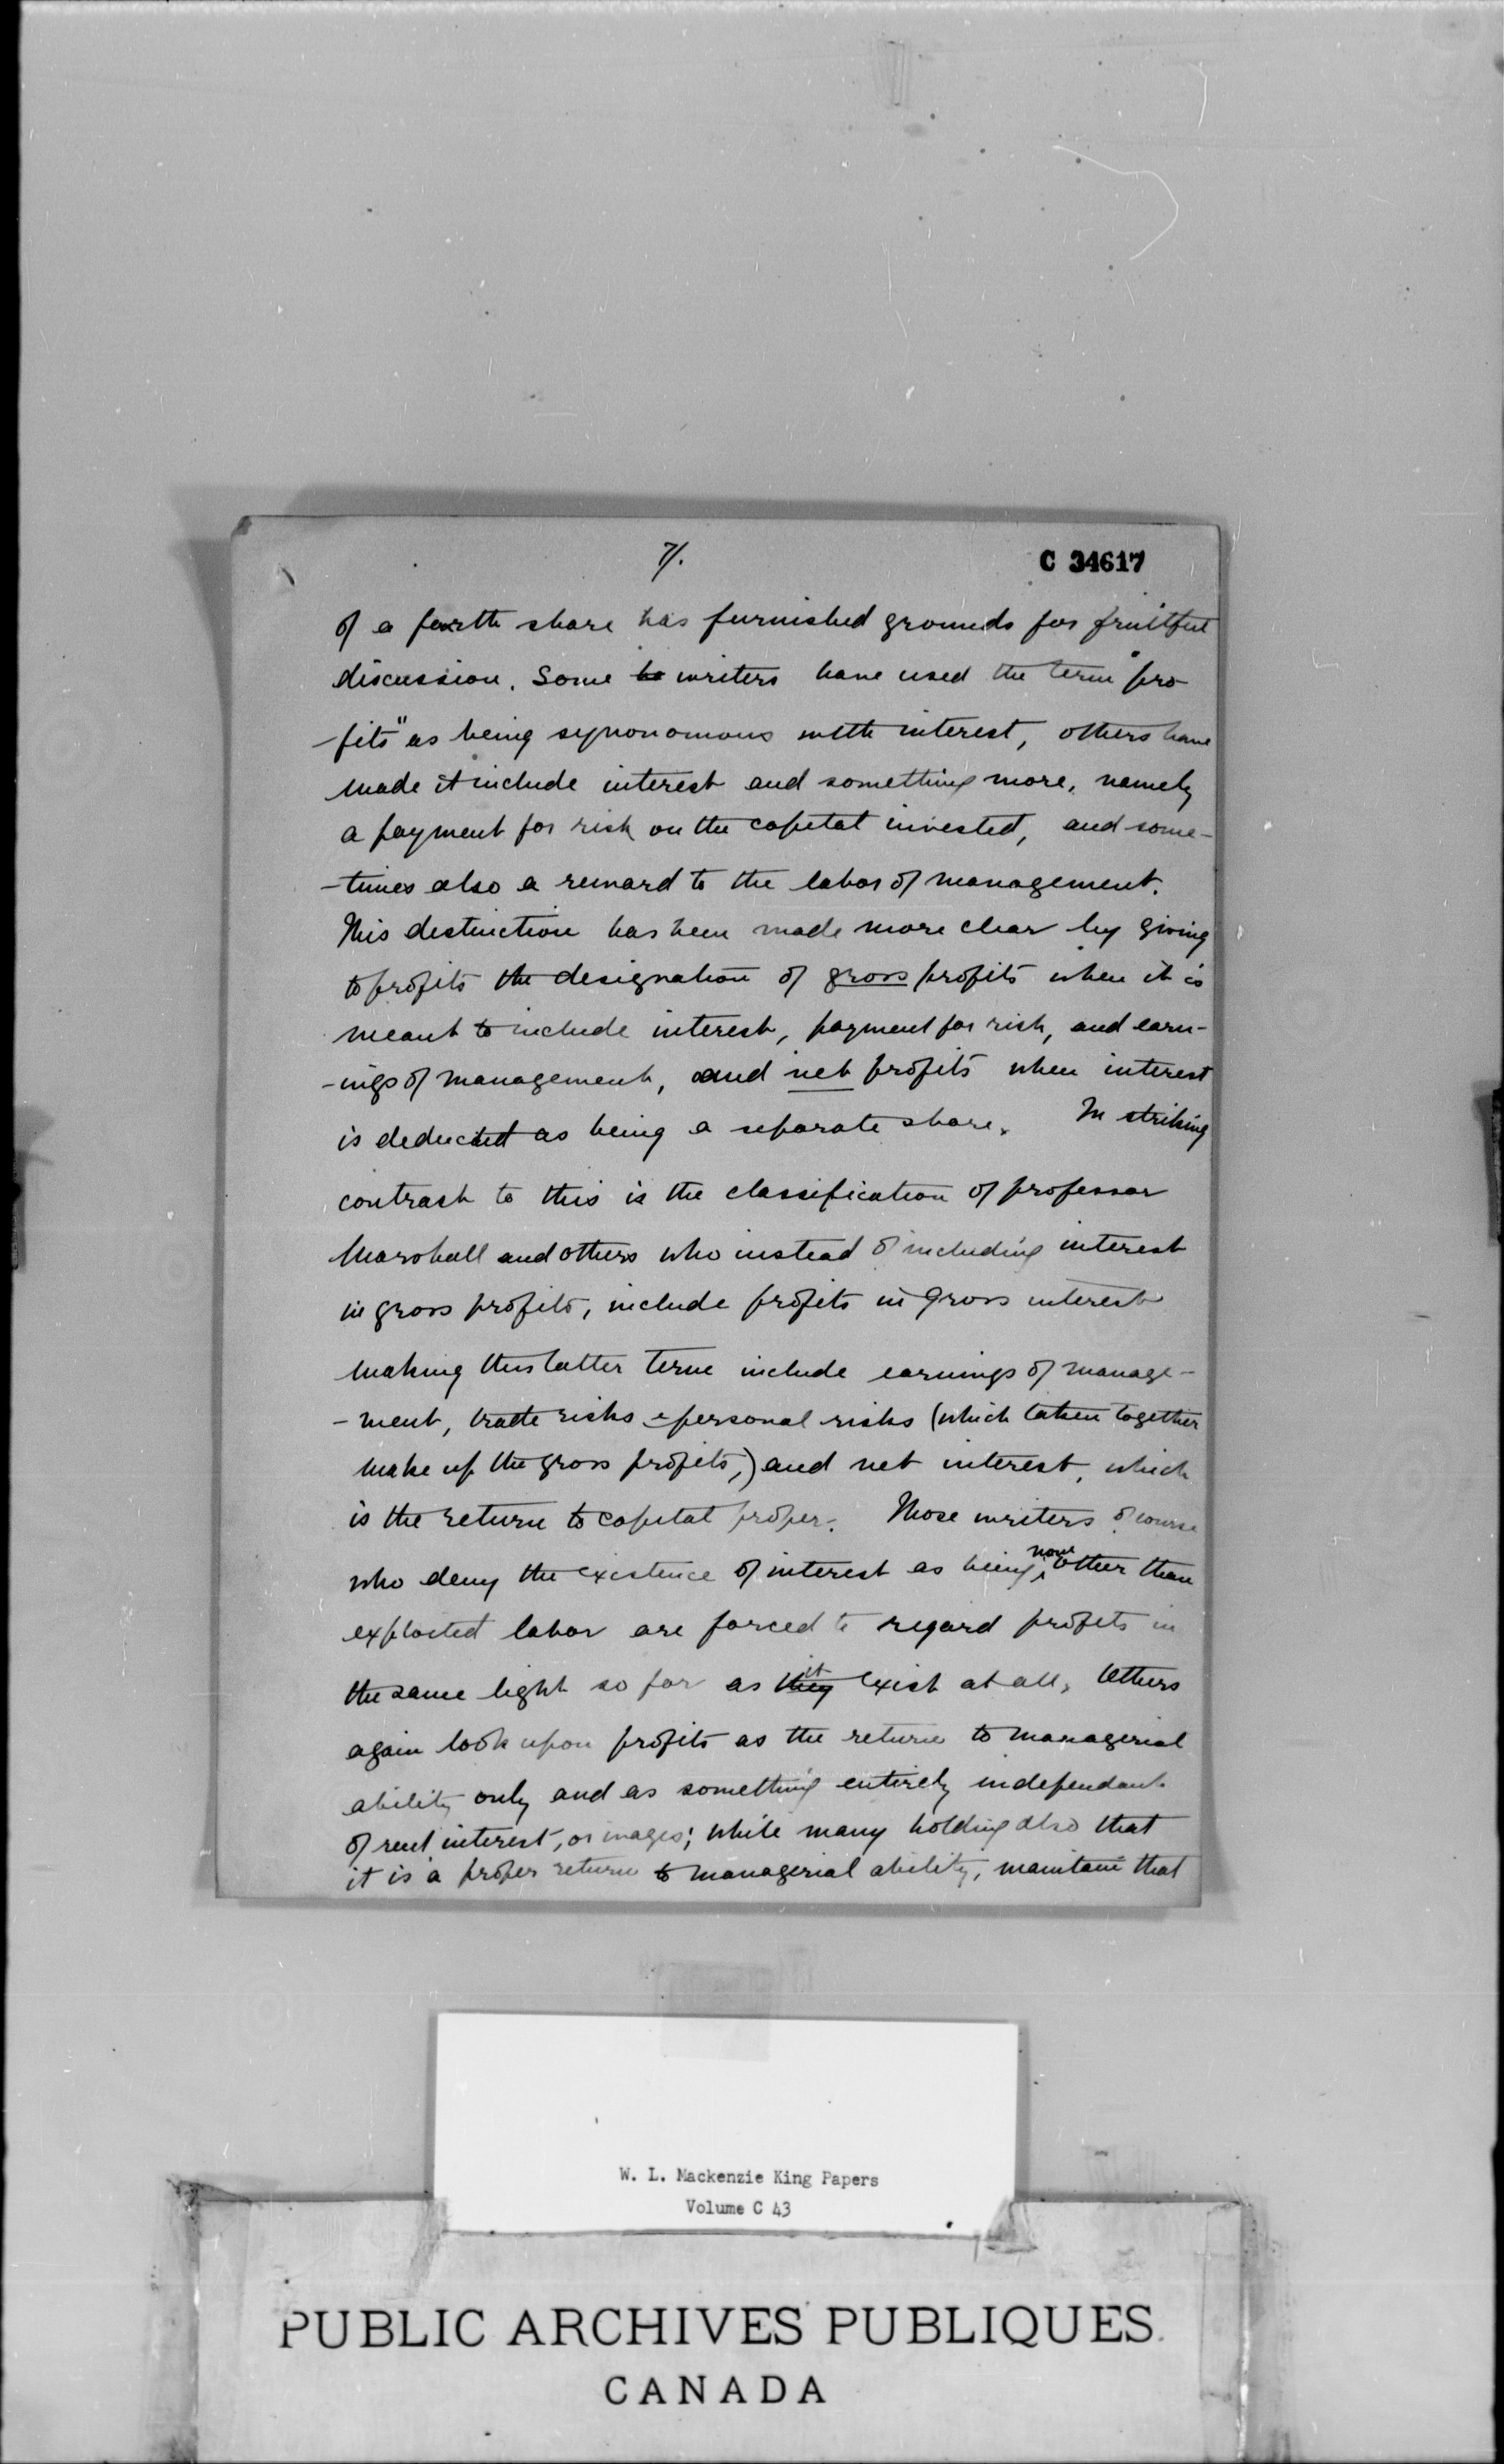 7/.
C 34617
of a fourth share has furnished grounds for fruitful
discussion. Some to writers have used the term "pro
-fits" as being synonomous with interest, others have
made it include interest and something more, namely
a payment for risk on the capital invested, and some-
-times also a reward to the labor of management.
This distinction has been made more clear by giving
to profits the designation of gross profits when it is
meant to include interest, payment for risk, and earn-
-ings of management, and net profits when interest
is deducted as being a separate share. In striking
contrast to this is the classification of professor
Marshall and others who instead of including interest
in gross profits, include profits in gross interest
making this latter term include earnings of manage-
-ment, trade risks & personal risks (which taken together
make up the gross profits,) and net interest, which
is the return to capital proper. Those writers of course
who deny the existence of interest as being none other than
exploited labor are forced to regard profits in
the same light so far as they it exist at all, Others
again look upon profits as the return to managerial
ability only and as something entirely independant
of rent, interest, or wages; while many holding also that
it is a proper return to managerial ability, maintain that
W. L. Mackenzie King Papers
Volume C 43
PUBLIC ARCHIVES PUBLIQUES
CANADA